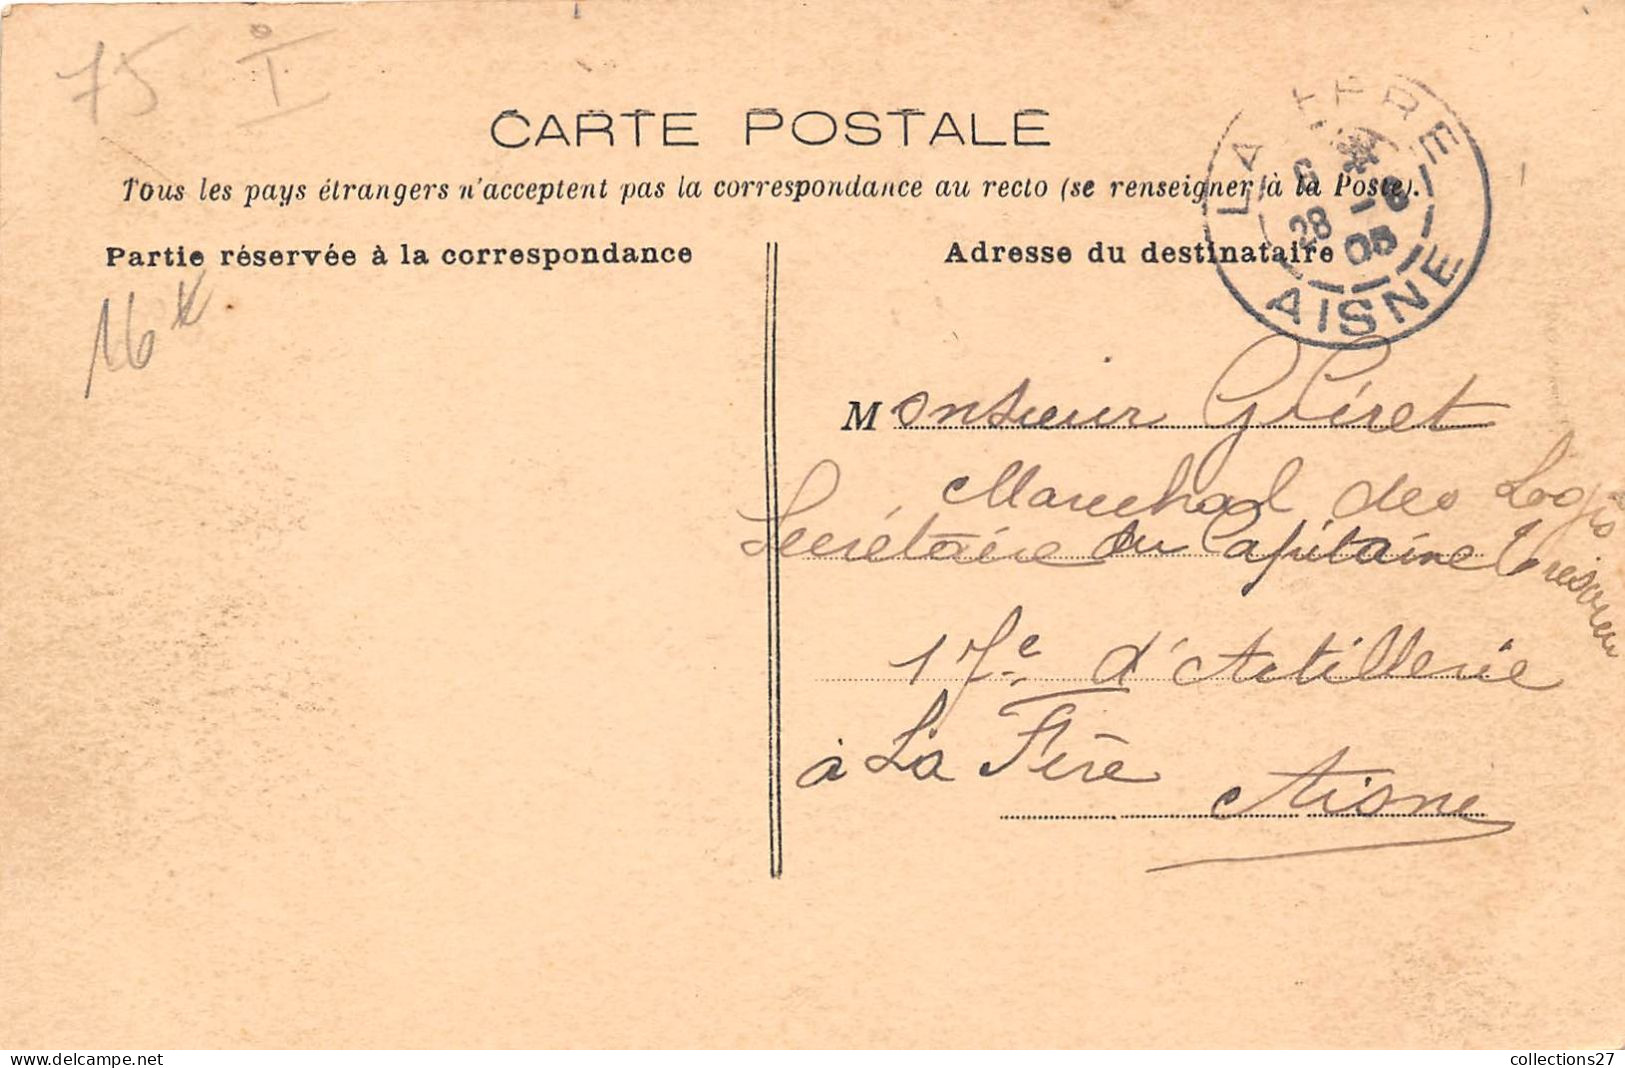 75 I
CARTE POSTALE
Tous les pays étrangers n'acceptent pas la correspondance au recto (se renseigner à la Poste).
Partie réservée à la correspondance
Adresse du destinataire
LA FERE
28 -8
05
AISNE
16
Monsieur
Marechal des Logis
Secrétaire du Capitaine Trésorier
17e d'Artillerie
à La Fère
Aisne
www.delcampe.net
collections27